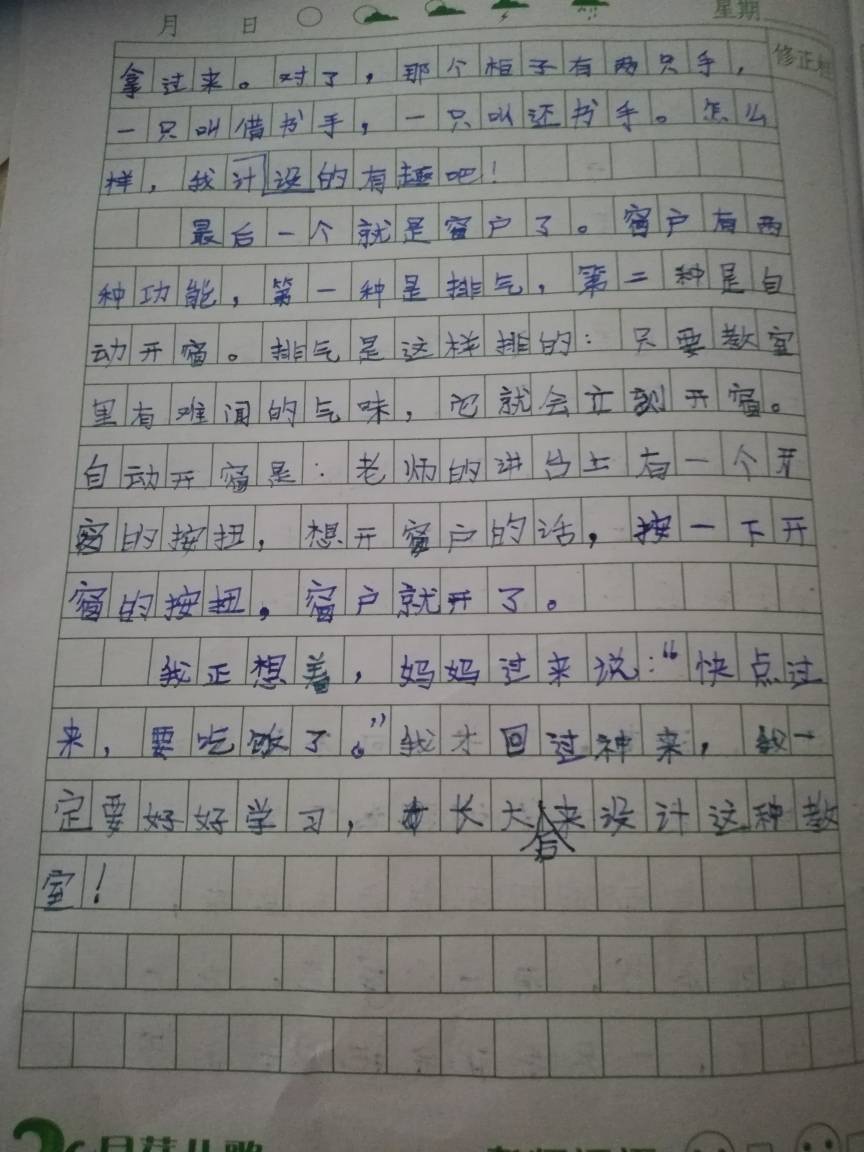 月 日 星期
修正栏
拿过来。对了，那个柜子有两只手，
一只叫借书手，一只叫还书手。怎么
样，我计设的有趣吧！
最后一个就是窗户了。窗户有两
种功能，第一种是排气，第二种是自
动开窗。排气是这样排的：只要教室
里有难闻的气味，它就会立刻开窗。
自动开窗是：老师的讲台上有一个开
窗的按扭，想开窗户的话，按一下开
窗的按扭，窗户就开了。
我正想着，妈妈过来说：“快点过
来，要吃饭了。”我才回过神来，我一
定要好好学习，长大后来设计这种教
室！